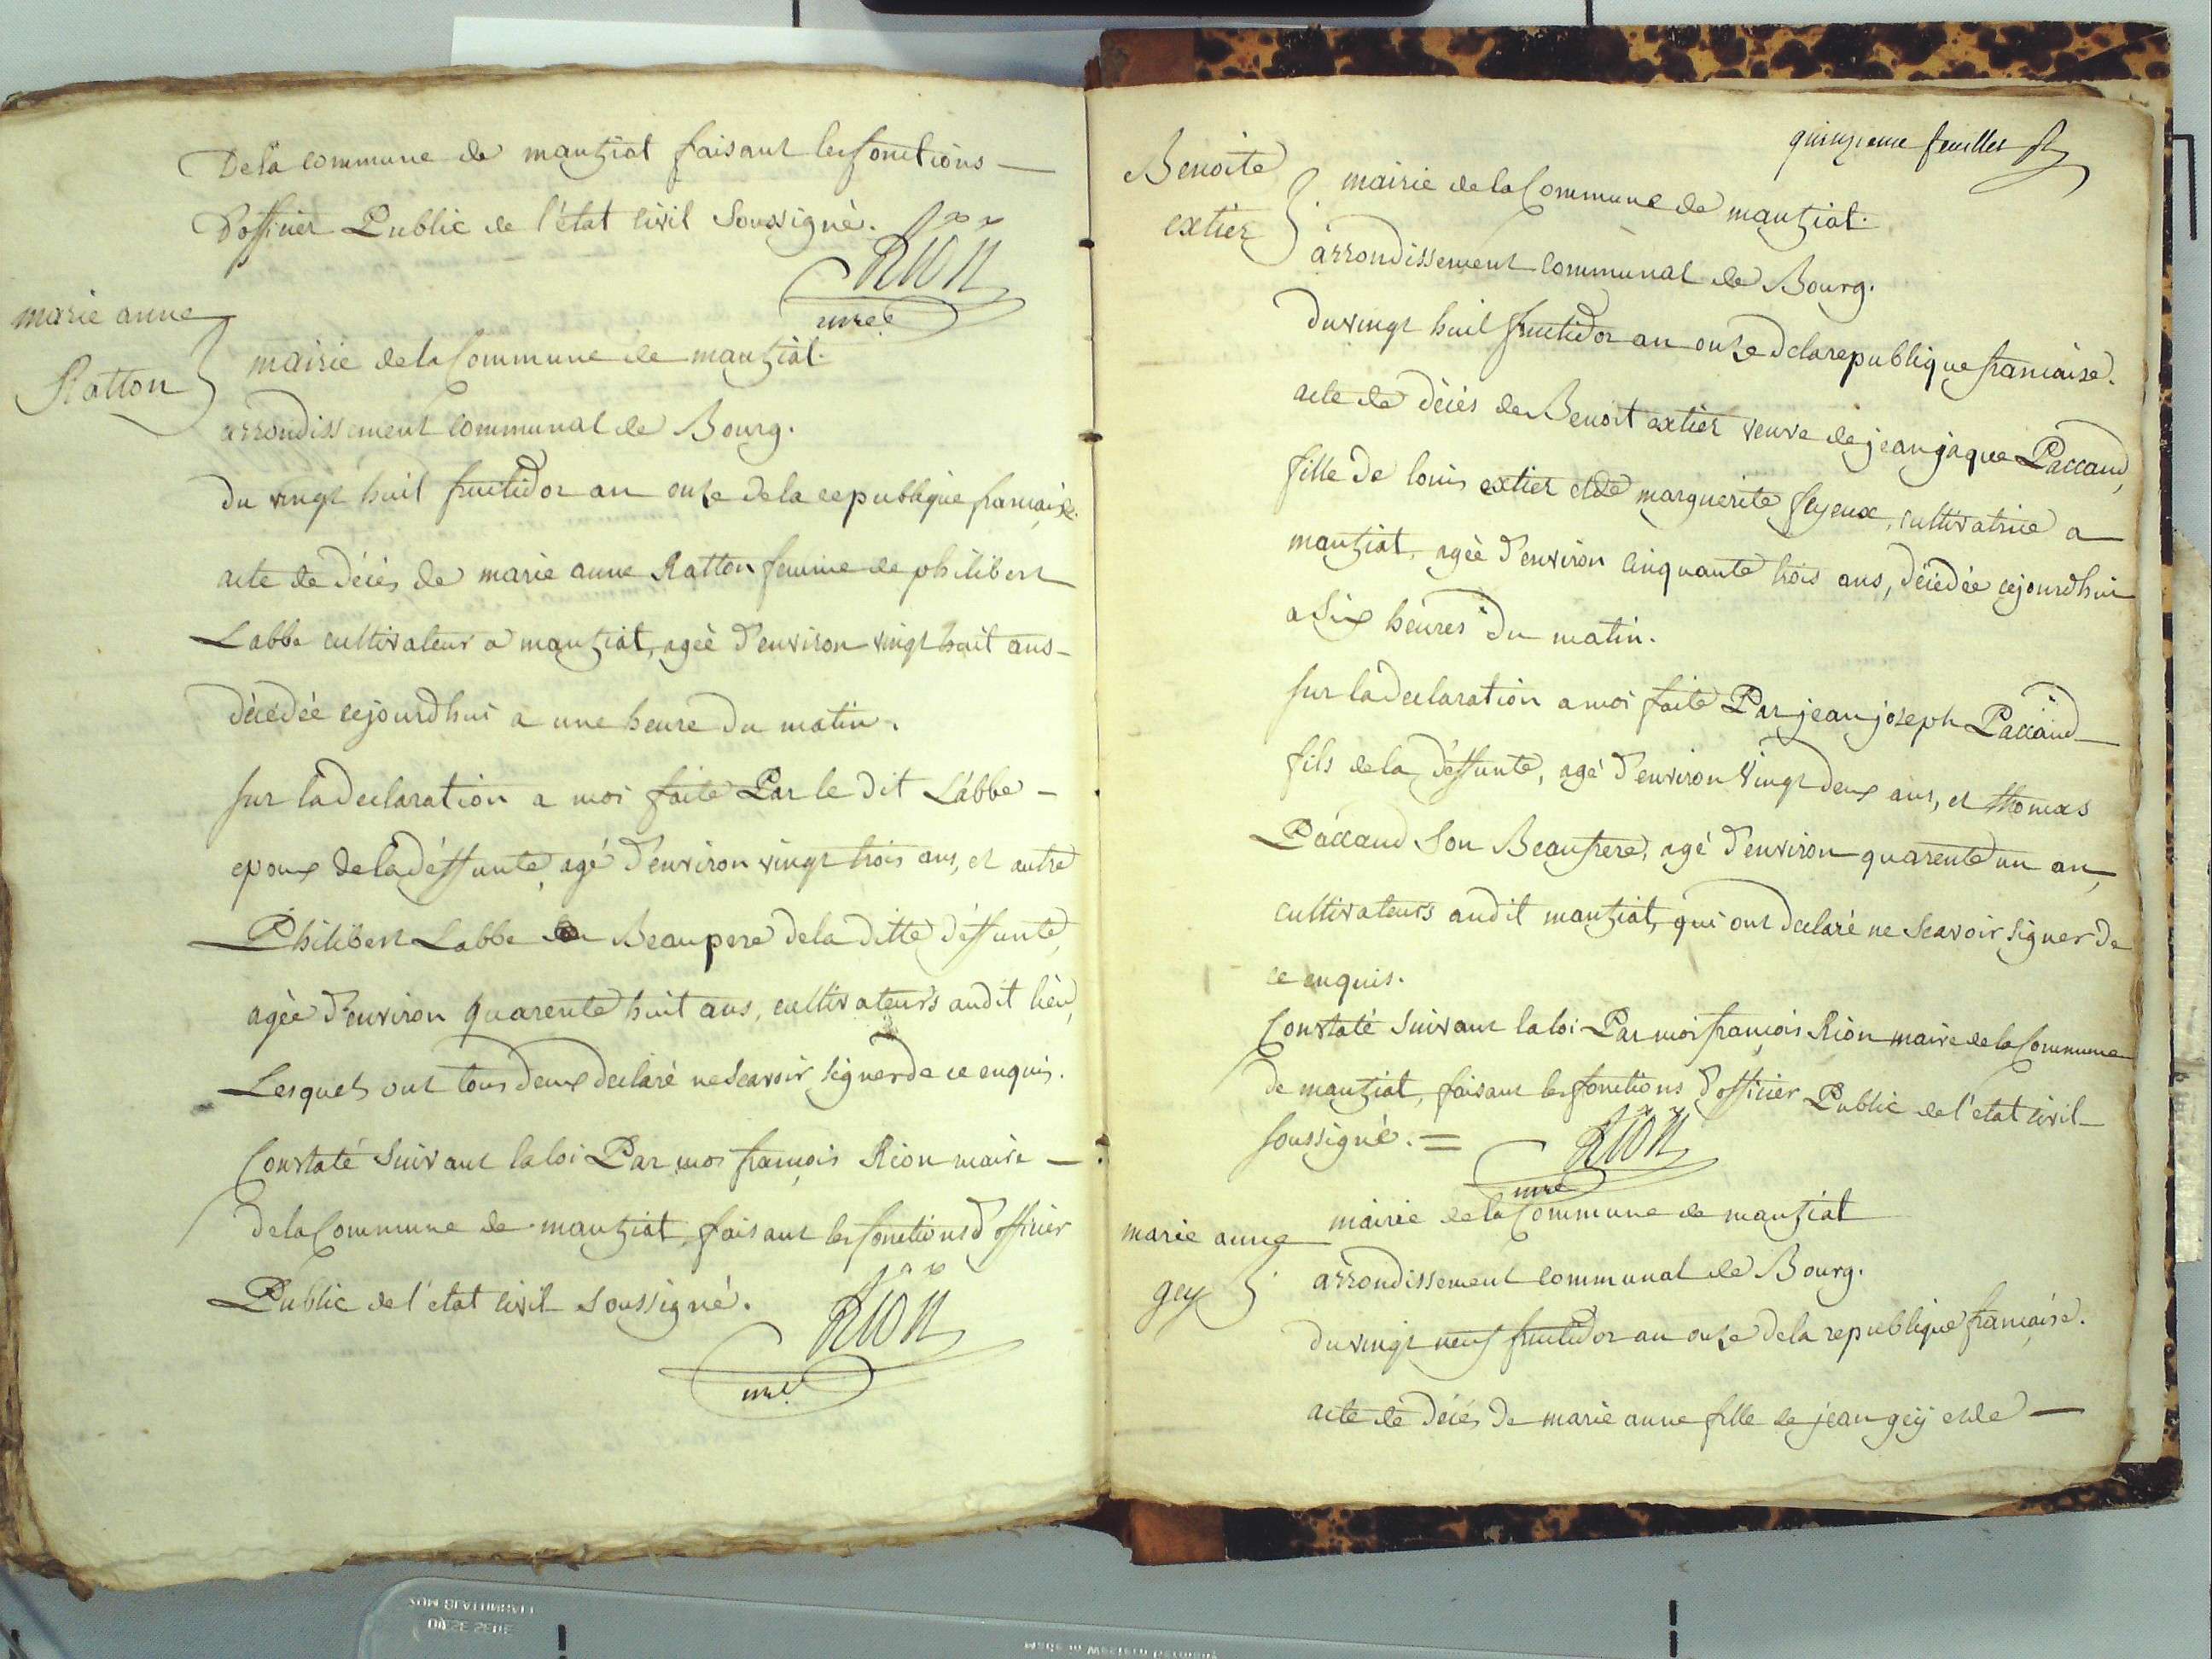 De la commune de mantziat faisant les fonctions
D'officier Public de l'état civil Soussigné.
Rion
mre
marie anne
Ratton
mairie de la Commune de mantziat.
arrondissement Communal de Bourg.
du vingt huit fructidor an onze de la republique francaise.
acte de décés de marie anne Ratton femme de philibert
Labbe cultivateur a mantziat, agéé d'environ vingt huit ans
décédéé cejourdhui a une heure du matin.
sur la declaration a moi faite Par le dit Labbe
epoux de la déffunte, agé d'environ vingt trois ans, et autre
Philibert Labbe Beaupere de la ditte déffunte,
agée d'environ quarente huit ans, cultivateurs audit lieu,
Lesquels ont tous deux declaré ne Scavoir signer de ce enquis.
Constaté Suivant la loi Par moi françois Rion maire
de la Commune de mantziat, faisant les fonctions d'officier
Public de l'etat civil soussigné.
Rion
mre
quinzieme feuillet
Benoite
extier
mairie de la Commune de mantziat.
arrondissement Communal de Bourg.
du vingt huit fructidor an onze de la republique francaise.
acte de décés de Benoit extier veuve de jean jaque Paccaud,
fille de louis extier et de marguerite feyeux, cultivatrice a
mantziat, agéé d'environ cinquante trois ans, décédéé cejourdhui
a Six heures du matin.
sur la declaration a moi faite Par jean joseph Paccaud
fils de la déffunte, agé d'environ Vingt deux ans, et thomas
Paccaud Son Beaufrere, agé d'environ quarente un an,
cultivateurs audit mantziat, qui ont declaré ne Scavoir signer de
ce enquis.
Constaté Suivant la loi Par moi françois Rion maire de la Commune
de mantziat, faisant les fonctions d'officier Public de l'etat civil
soussigné. =
Rion
mre
marie anne
gey
mairie de la Commune de mantziat
arrondissement communal de Bourg.
du vingt neuf fructidor an onze de la republique francaise.
acte de décés de marie anne fille de jean geÿ et de